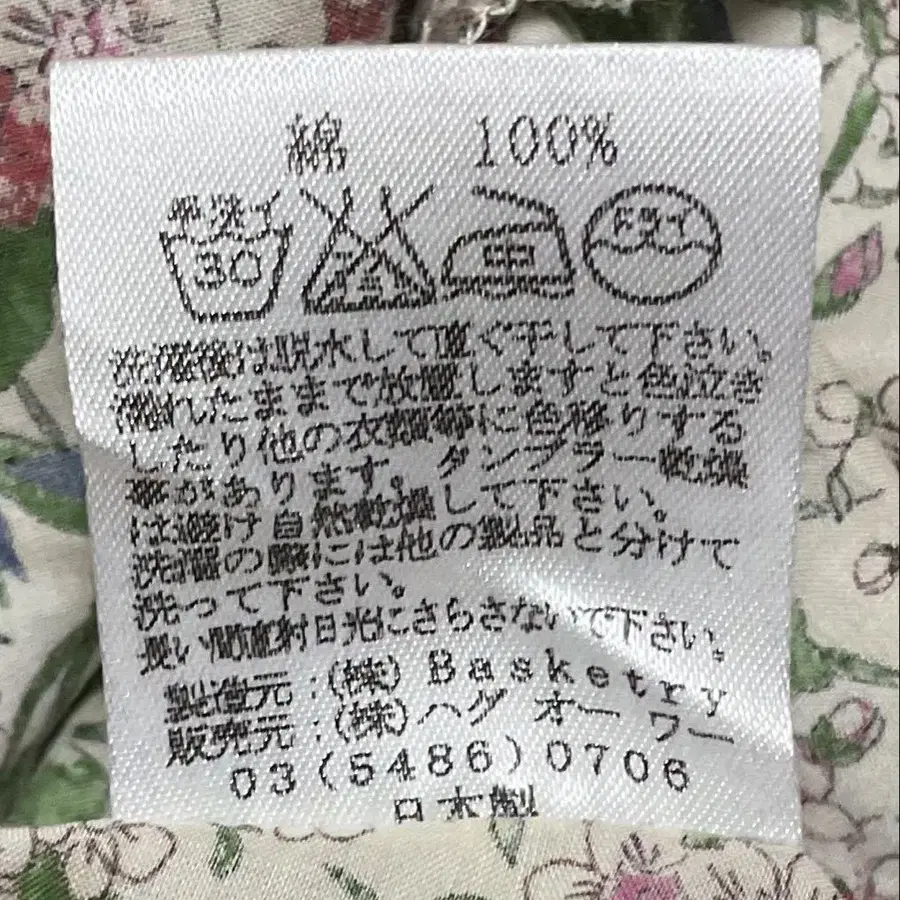 綿 100%
手洗イ
30
エンソサラシ
中
ドライ
洗濯後は脱水して直ぐ干して下さい。
濡れたままで放置しますと色泣き
したり他の衣類等に色移りする
事があります。タンブラー乾燥
は避け自然乾燥して下さい。
洗濯の際には他の製品と分けて
洗って下さい。
長い間直射日光にさらさないで下さい。
製造元：(株) Basketry
販売元：(株)ハグ オー ワー
03(5486)0706
日本製